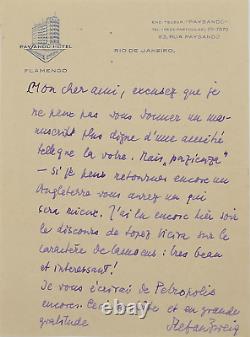 PAYSANDÚ HOTEL
FLAMENGO
END. TELEGR. "PAYSANDU"
23, RUA PAYSANDÚ
RIO DE JANEIRO,
Mon cher ami, excusez que je
ne peux pas vous donner un ma-
nuscrit plus digne d'une amitié
telle que la votre. Mais, "pazienza"
– si je peux retourner encore en
Angleterre vous aurez un qui
sera mieux. J'ai lu encore hier soir
le discours de Lopez Vieira sur le
caractère de Camoens: très beau
et interessant!
Je vous écrirai de Petropolis
encore.
et en grande
gratitude Stefan Zweig